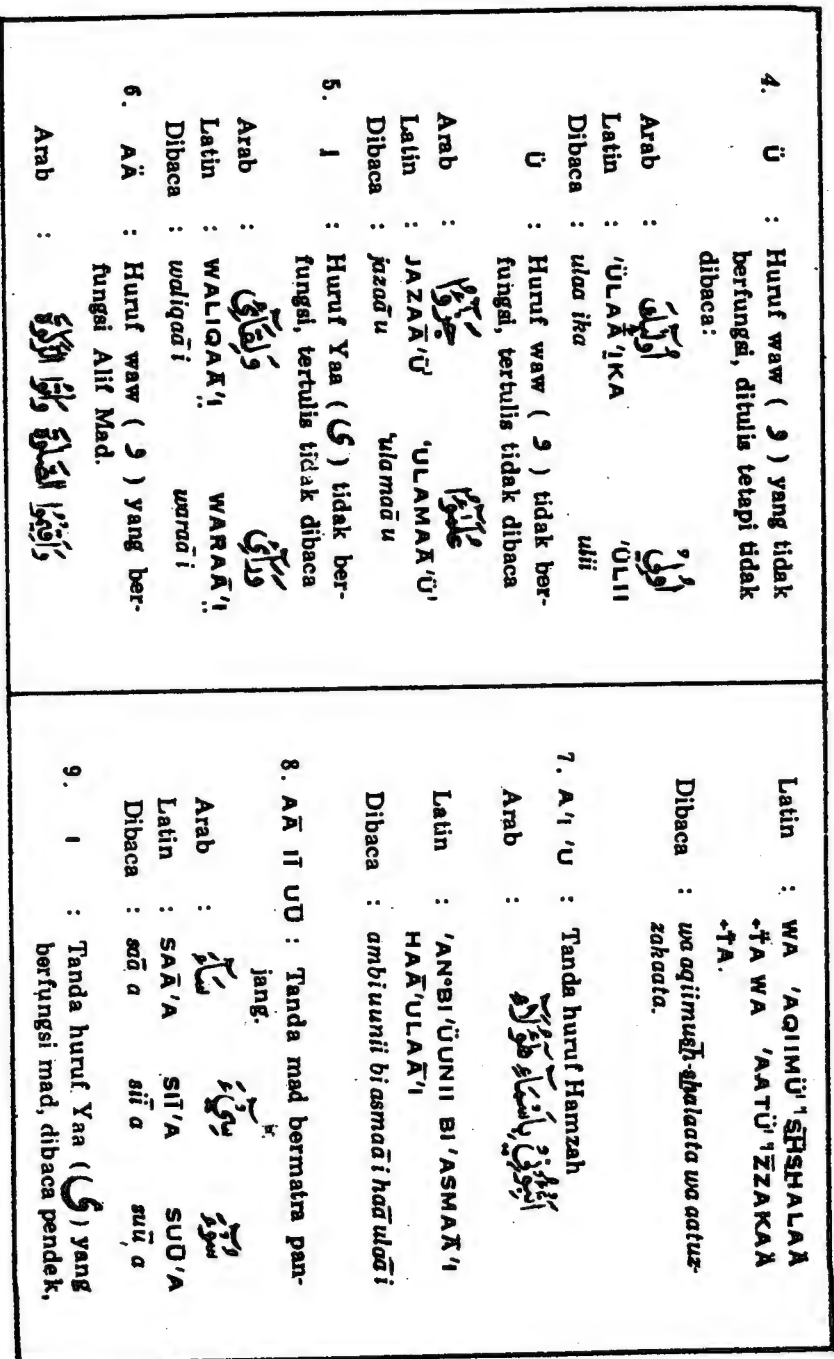 4. Ü : Huruf waw ( و ) yang tidak
berfungsi, ditulis tetapi tidak
dibaca:
Arab : أُولَٰئِكَ أُولِي
Latin : 'ÜLAĀ'ịKA 'ÜLII
Dibaca : ulaa ika ulii
Ü : Huruf waw ( و ) tidak ber-
fungsi, tertulis tidak dibaca
Arab : جَزَٰٓؤُا عُلَمَٰٓؤُا
Latin : JAZAĀ'Ü' 'ULAMAĀ'Ü'
Dibaca : jazaā u 'ulamaā u
5. I : Huruf Yaa ( ى ) tidak ber-
fungsi, tertulis tidak dibaca
Arab : وَلِقَآئِ وَرَآئِ
Latin : WALIQAĀ'ı̤ WARAĀ'ı̤
Dibaca : waliqaā i waraā i
6. AÄ : Huruf waw ( و ) yang ber-
fungsi Alif Mad.
Arab : وَأَقِيمُوا الصَّلَوٰةَ وَآتُوا الزَّكَوٰةَ
Latin : WA 'AQIIMÜ'' S̄H̄SHALAÄ
WA 'AATÜ'' Z̄ZAKAÄ
Dibaca : wa aqiimush-shalaata wa aatuz-
zakaata.
7. A 'I 'U : Tanda huruf Hamzah
Arab : أَنْبِئُونِي بِأَسْمَآءِ هَٰٓؤُلَآءِ
Latin : 'AN°BI'ÜUNII BI'ASMAĀ'I
HAĀ'ULAĀ'I
Dibaca : ambiuunii bi asmaā i haā ulaā i
8. AĀ IĪ UŪ : Tanda mad bermatra pan-
jang.
Arab : سَآءَ سِيٓءَ سُوٓءَ
Latin : SAĀ'A SIĪ'A SUŪ'A
Dibaca : saā a siī a suū a
9. I : Tanda huruf Yaa ((ى) yang
berfungsi mad, dibaca pendek,